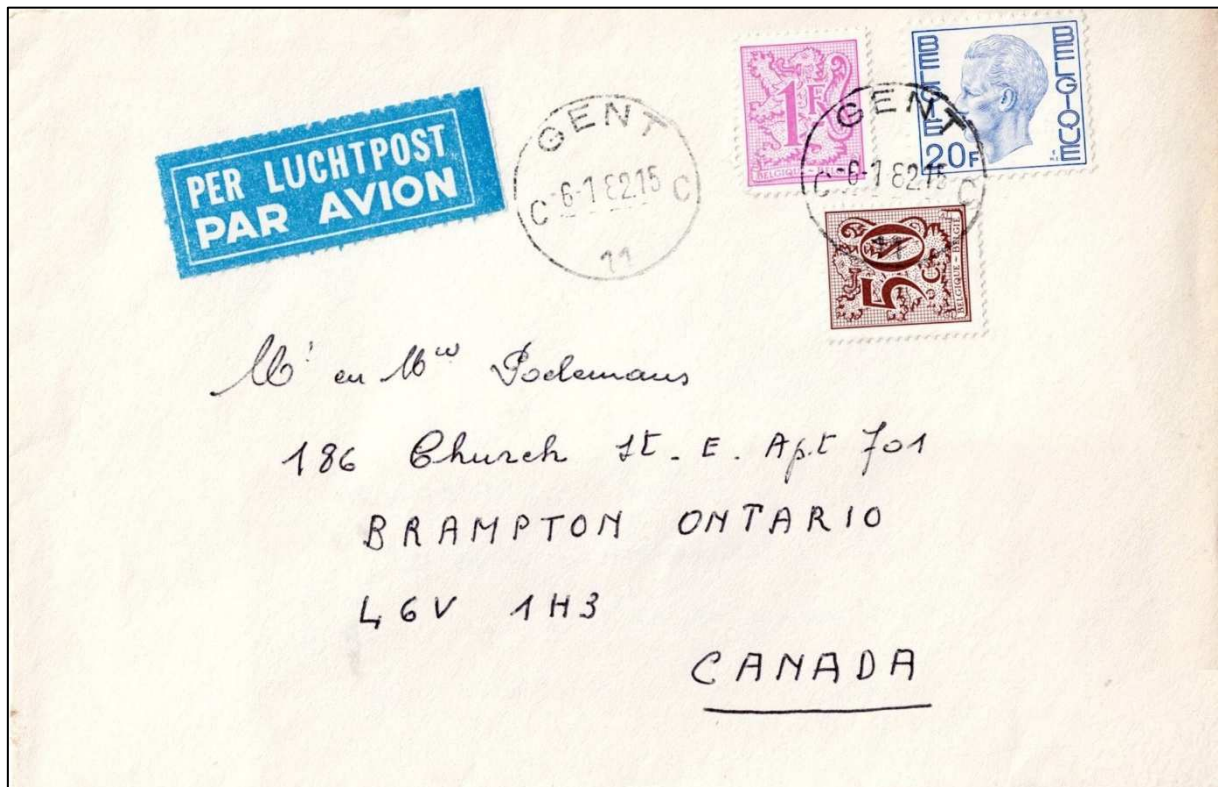 PER LUCHTPOST
PAR AVION
GENT
C -6-1 82.15 C
11
1F
BELGIQUE - BELGIË
BELGIE BELGIQUE
20F
GENT
C -6-1 82.15 C
11
50c
BELGIQUE - BELGIË
Mr en Mw
186 Church St. E. Apt 701
BRAMPTON ONTARIO
L6V 1H3
CANADA